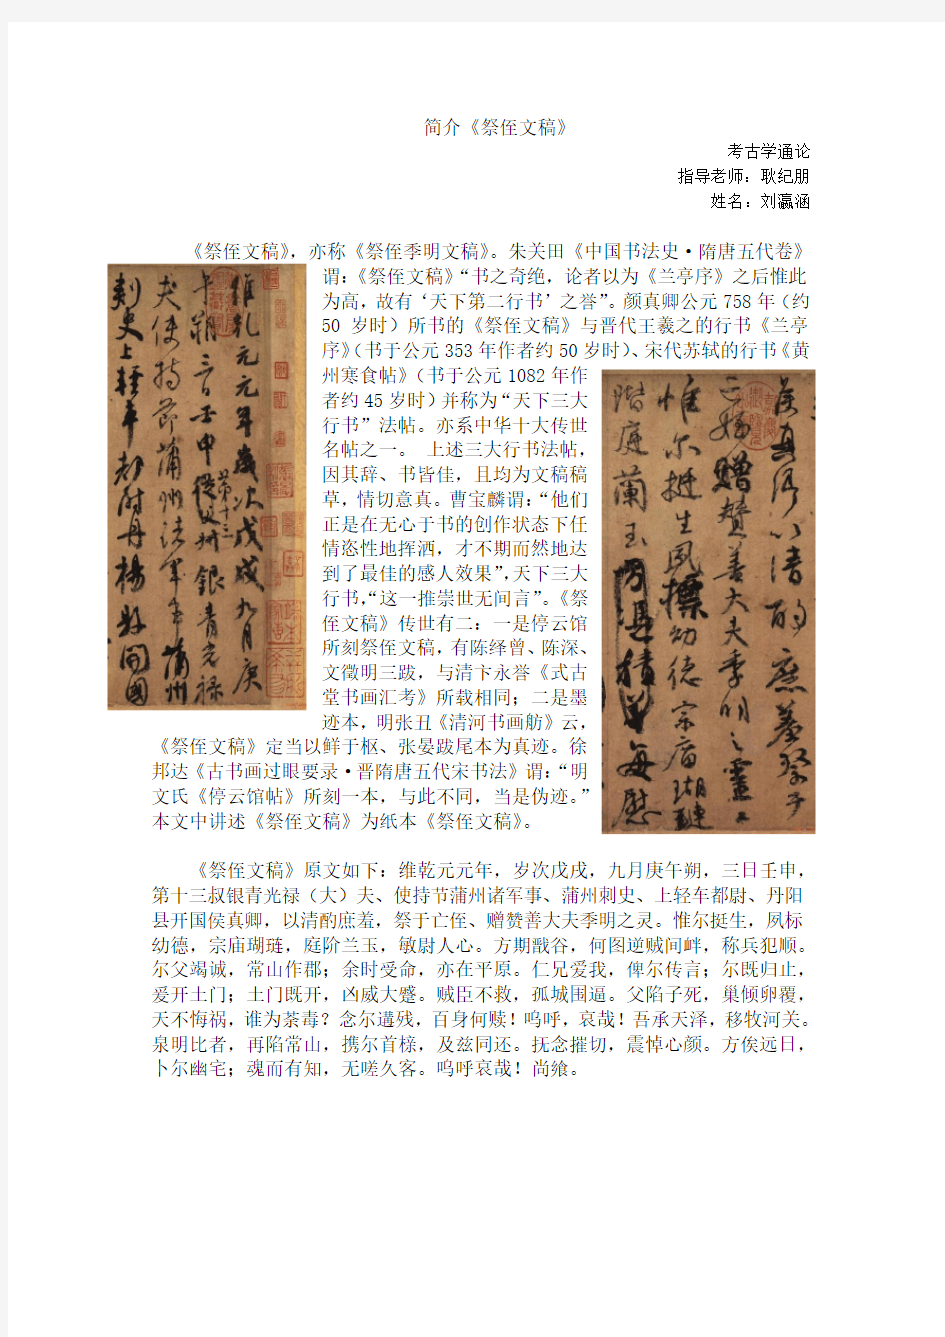 简介《祭侄文稿》
考古学通论
指导老师：耿纪朋
姓名：刘瀛涵
《祭侄文稿》，亦称《祭侄季明文稿》。朱关田《中国书法史·隋唐五代卷》
谓：《祭侄文稿》“书之奇绝，论者以为《兰亭序》之后惟此
为高，故有‘天下第二行书’之誉”。颜真卿公元 758 年（约
50 岁时）所书的《祭侄文稿》与晋代王羲之的行书《兰亭
序》（书于公元 353 年作者约 50 岁时）、宋代苏轼的行书《黄
州寒食帖》（书于公元 1082 年作
者约 45 岁时）并称为“天下三大
行书”法帖。亦系中华十大传世
名帖之一。 上述三大行书法帖，
因其辞、书皆佳，且均为文稿稿
草，情切意真。曹宝麟谓：“他们
正是在无心于书的创作状态下任
情恣性地挥洒，才不期而然地达
到了最佳的感人效果”，天下三大
行书，“这一推崇世无间言”。《祭
侄文稿》传世有二：一是停云馆
所刻祭侄文稿，有陈绎曾、陈深、
文徵明三跋，与清卞永誉《式古
堂书画汇考》所载相同；二是墨
迹本，明张丑《清河书画舫》云，
《祭侄文稿》定当以鲜于枢、张晏跋尾本为真迹。徐
邦达《古书画过眼要录·晋隋唐五代宋书法》谓：“明
文氏《停云馆帖》所刻一本，与此不同，当是伪迹。”
本文中讲述《祭侄文稿》为纸本《祭侄文稿》。
維乾元元年歲次戊戌九月庚
午朔三日壬申第十三從父銀青光祿
夫使持節蒲州諸軍事蒲州
刺史上輕車都尉丹楊縣開國
侯真卿以清酌庶羞祭于
亡姪贈贊善大夫季明之靈
惟爾挺生夙標幼德宗廟瑚璉
階庭蘭玉每慰
《祭侄文稿》原文如下：维乾元元年，岁次戊戌，九月庚午朔，三日壬申，
第十三叔银青光禄（大）夫、使持节蒲州诸军事、蒲州刺史、上轻车都尉、丹阳
县开国侯真卿，以清酌庶羞，祭于亡侄、赠赞善大夫季明之灵。惟尔挺生，夙标
幼德，宗庙瑚琏，庭阶兰玉，敏尉人心。方期戬谷，何图逆贼间衅，称兵犯顺。
尔父竭诚，常山作郡；余时受命，亦在平原。仁兄爱我，俾尔传言；尔既归止，
爰开土门；土门既开，凶威大蹙。贼臣不救，孤城围逼。父陷子死，巢倾卵覆，
天不悔祸，谁为荼毒？念尔遘残，百身何赎！呜呼，哀哉！吾承天泽，移牧河关。
泉明比者，再陷常山，携尔首榇，及兹同还。抚念摧切，震悼心颜。方俟远日，
卜尔幽宅；魂而有知，无嗟久客。呜呼哀哉！尚飨。